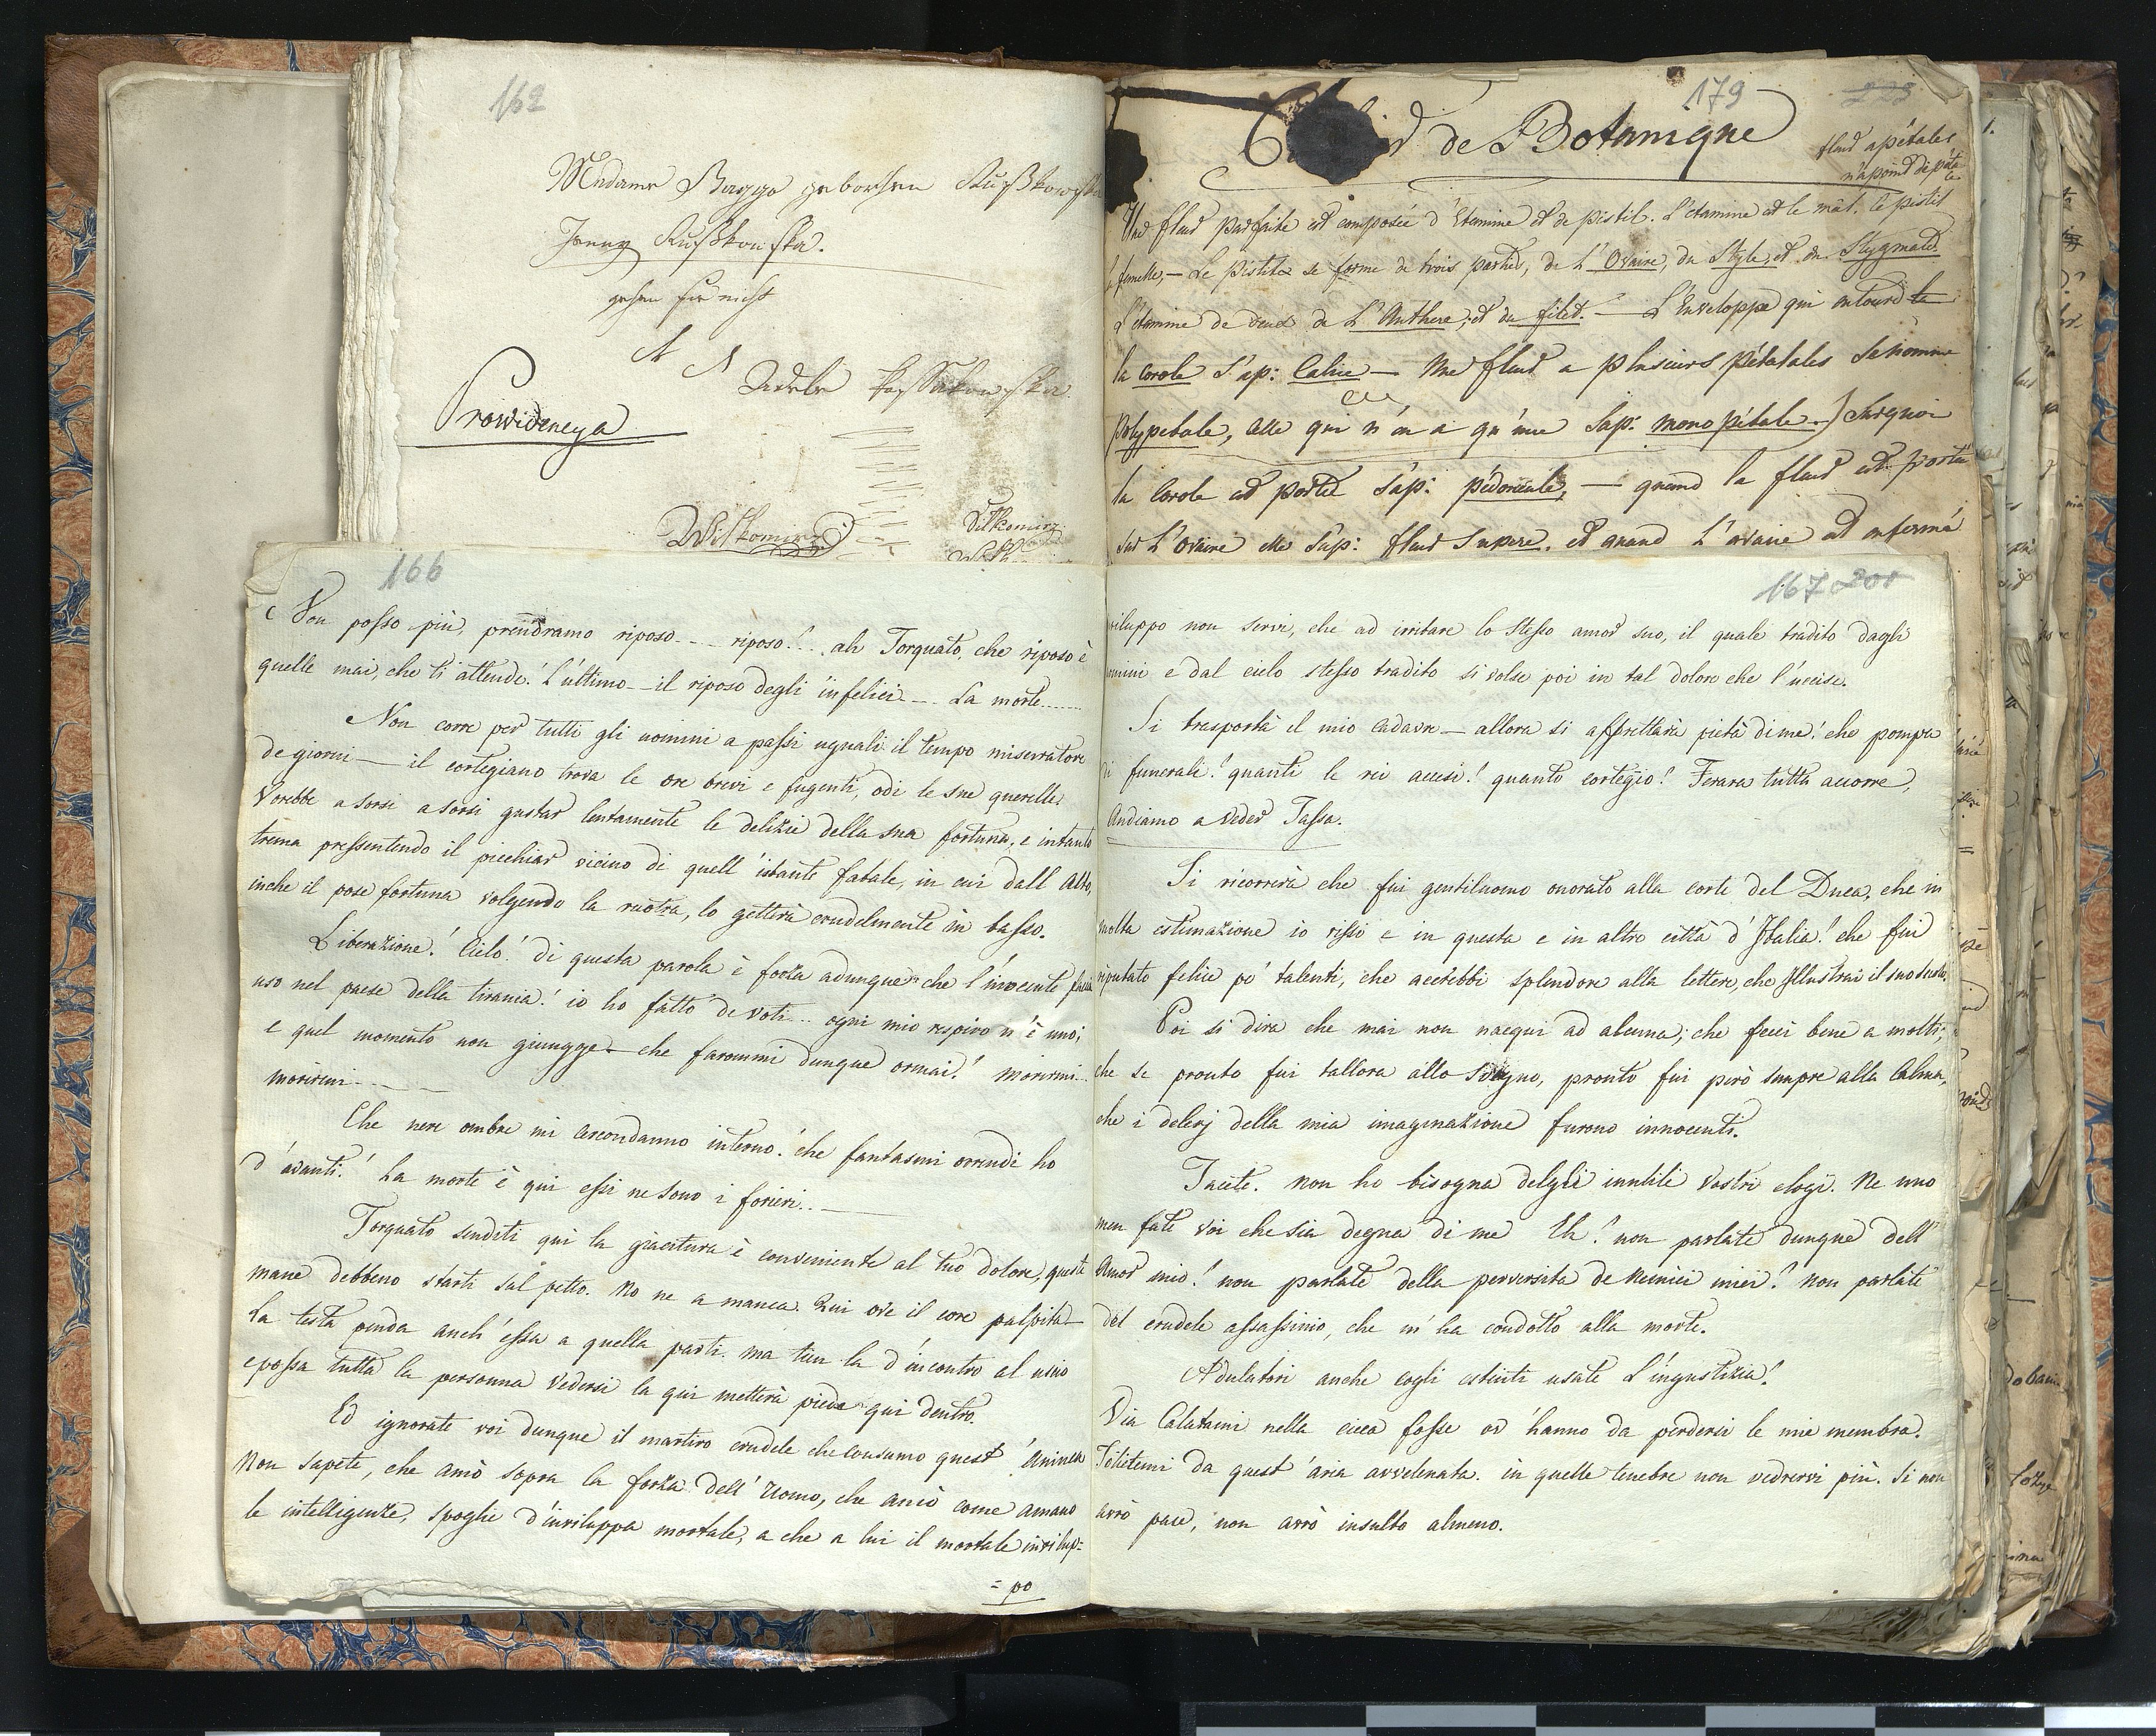 162
Madame Baggo geborhen
Jenny
gehen sie nicht
A A
Adele
Prowidencya
Wilkomirz
Wilkomirz
179
de Botanique
fleur apétales
n'a point de péta
le
Une fleur parfaite est composée d'Etamine et de pistil. L'etamine est le mâl. Le pistil
la femelle, — Le Pistile se forme de trois parties, de L'Ovaire, du Style, et du Stygmate.
L'etamine de deux de L'Anthere, et du filet. — L'Enveloppe qui entoure la
la Corole S'ap: Calice — Une fleur a plusieurs pétatales Se nomme
Polypetale, Celle qui n'en a qu'une Sap: mono pétale.) Surquoi
la Corole est porté S'ap: pédoncule, — quand la fleur est porté
sur L'ovaire elle S'ap: fleur Supere. et quand L'ovaire est enfermé
166
Non posso più, prendramo riposo... riposo!... ah Torquato, che riposo è
quelle mai, che ti attende! L'ultimo — il riposo degli infelici... La morte......
Non corre per tutti gli uomini a passi uguali il tempo miserratore
de giorni — il cortegiano trova le ore brevi e fugenti, odi le sue querelle,
Vorebbe a sorsi a sorsi gustar lentamente le delizie della sua fortuna, e intanto
trema pressentendo il picchiar vicino di quell'istante fatale, in cui dall Alto,
inche il pose fortuna volgendo la ruotra, lo getterà crudelmente in basso.
Liberazione! Cielo! di questa parola è forza adunque che l'inocente faccia
uso nel paese della tirania! io ho fatto de voti... ogni mio respiro n'è uno;
e quel momento non giungge — che farommi dunque ormai! Morirmi..
morirmi......
Che nere ombre mi circondanno intorno! che fantasmi orrendi ho
d'avanti! La morte è qui essi ne sono i forieri...
Torquato senditi qui la giacitura è conveniente al tuo dolore, queste
mane debbeno starti sul petto. No ne a manca. Qui ove il core palpita —
La testa penda anch'essa a quella parti. ma tien la d'incontro al usio
e possa tutta la personna Vedersi la qui metterà piede qui dentro.
Ed ignorate voi dunque il martiro crudele che consumo quest'Anima
Non sapete, che amò sopra la forza dell'Uomo, che amò come amano
le intelligenze, spoglie d'inviluppa mortale, a che a lui il mortale invilup=
=po
167 201
viluppo non servi, che ad irritare lo Stesso amor suo, il quale tradito dagli
uomini e dal cielo stesso tradito si volse poi in tal dolore che l'uccise.
Si trasportà il mio Cadavre — allora si affrettarà pietà di me! che pompa
di funerali! quanti le rii accesi! quanto cortegio! Ferara tutta accorre,
Andiamo a Veder Tasso.
Si ricorrerà che fui gentiluomo onorato alla corte del Duca, che in
molta estimazione io vissi e in questa e in altre città d'Italia! che fui
riputato felice pe' talenti, che accrebbi splendore alla lettere, che Illustrai il suo Secolo.
Poi si dira che mai non nacqui ad alcuna; che feeci bene a molti;
che se pronto fui tallora allo Sdegno, pronto fui però sempre alla Calma,
che i delirj della mia imaginazione furono innocenti.
Tacete. non ho bisogna delgli inutili Vostri elogi. Ne uno
men fate voi che sia degna di me Eh! non parlate dunque dell'
Amor mio! non parlate della perversita de Nemici miei! non parlate
del crudele assassinio, che m'ha condotto alla morte.
Adulatori anche cogli estinti usate L'ingustizia!
Via Calatami nella cieca fosse ov'hanno da perdersi le mie membra.
Tolietemi da quest'aria avvelenata. in quelle tenebre non vedrervi più. Si non
avrò pace, non avrò insulto almeno.